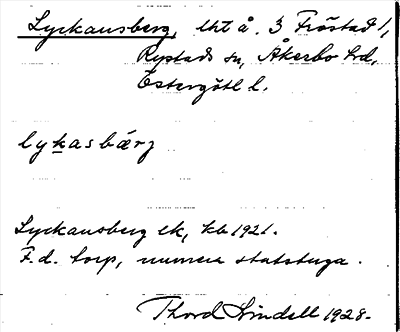 Lyckansberg, lht å. 3 Fröstad /,
Rystads sn, Åkerbo hd,
Östergötl l.
lykasbærg
Lyckansberg ek, kb 1921.
F.d. torp, numera statstuga.
Thord Lindell 1928.